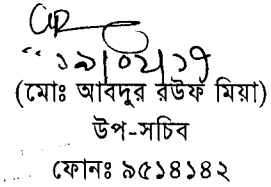 ১৯/০২/১৭
(মোঃ আবদুর রউফ মিয়া)
উপ-সচিব
ফোনঃ ৯৫১৪১৪২